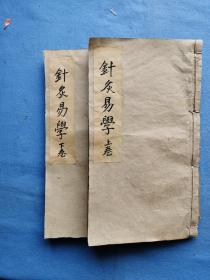 針灸易學 上卷
針灸易學 下卷